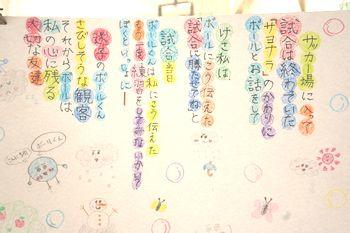 サッカー場に入って
試合は終わっていた
「サヨナラ」のかわりに
ボールとお話をして
けさ私は
ボールにこう伝えた
試合に勝たてねと
試合当日
ボールくんは私にこう伝えた
もう一度練習をしてみないかい?
ぼくといっしょに
迷子のボールくん
さびしそうな観客
それからボールは
私の心に残る
大切な友達
ボールくん